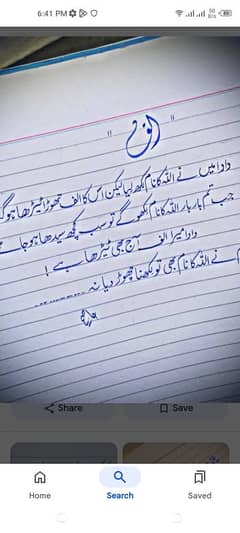 6:41 PM
" الف "
دادا میں نے اللہ کا نام لکھ لیا لیکن اس کا الف تھوڑا ٹیڑھا ہوگ
جب تم بار بار اللہ کا نام لکھو گے تو سب کچھ سیدھا ہو جائے
دادا میرا الف آج بھی ٹیڑھا ہے !
نے اللہ کا نام بھی تو لکھنا چھوڑ دیا نہ
Share
Save
Home
Search
Saved